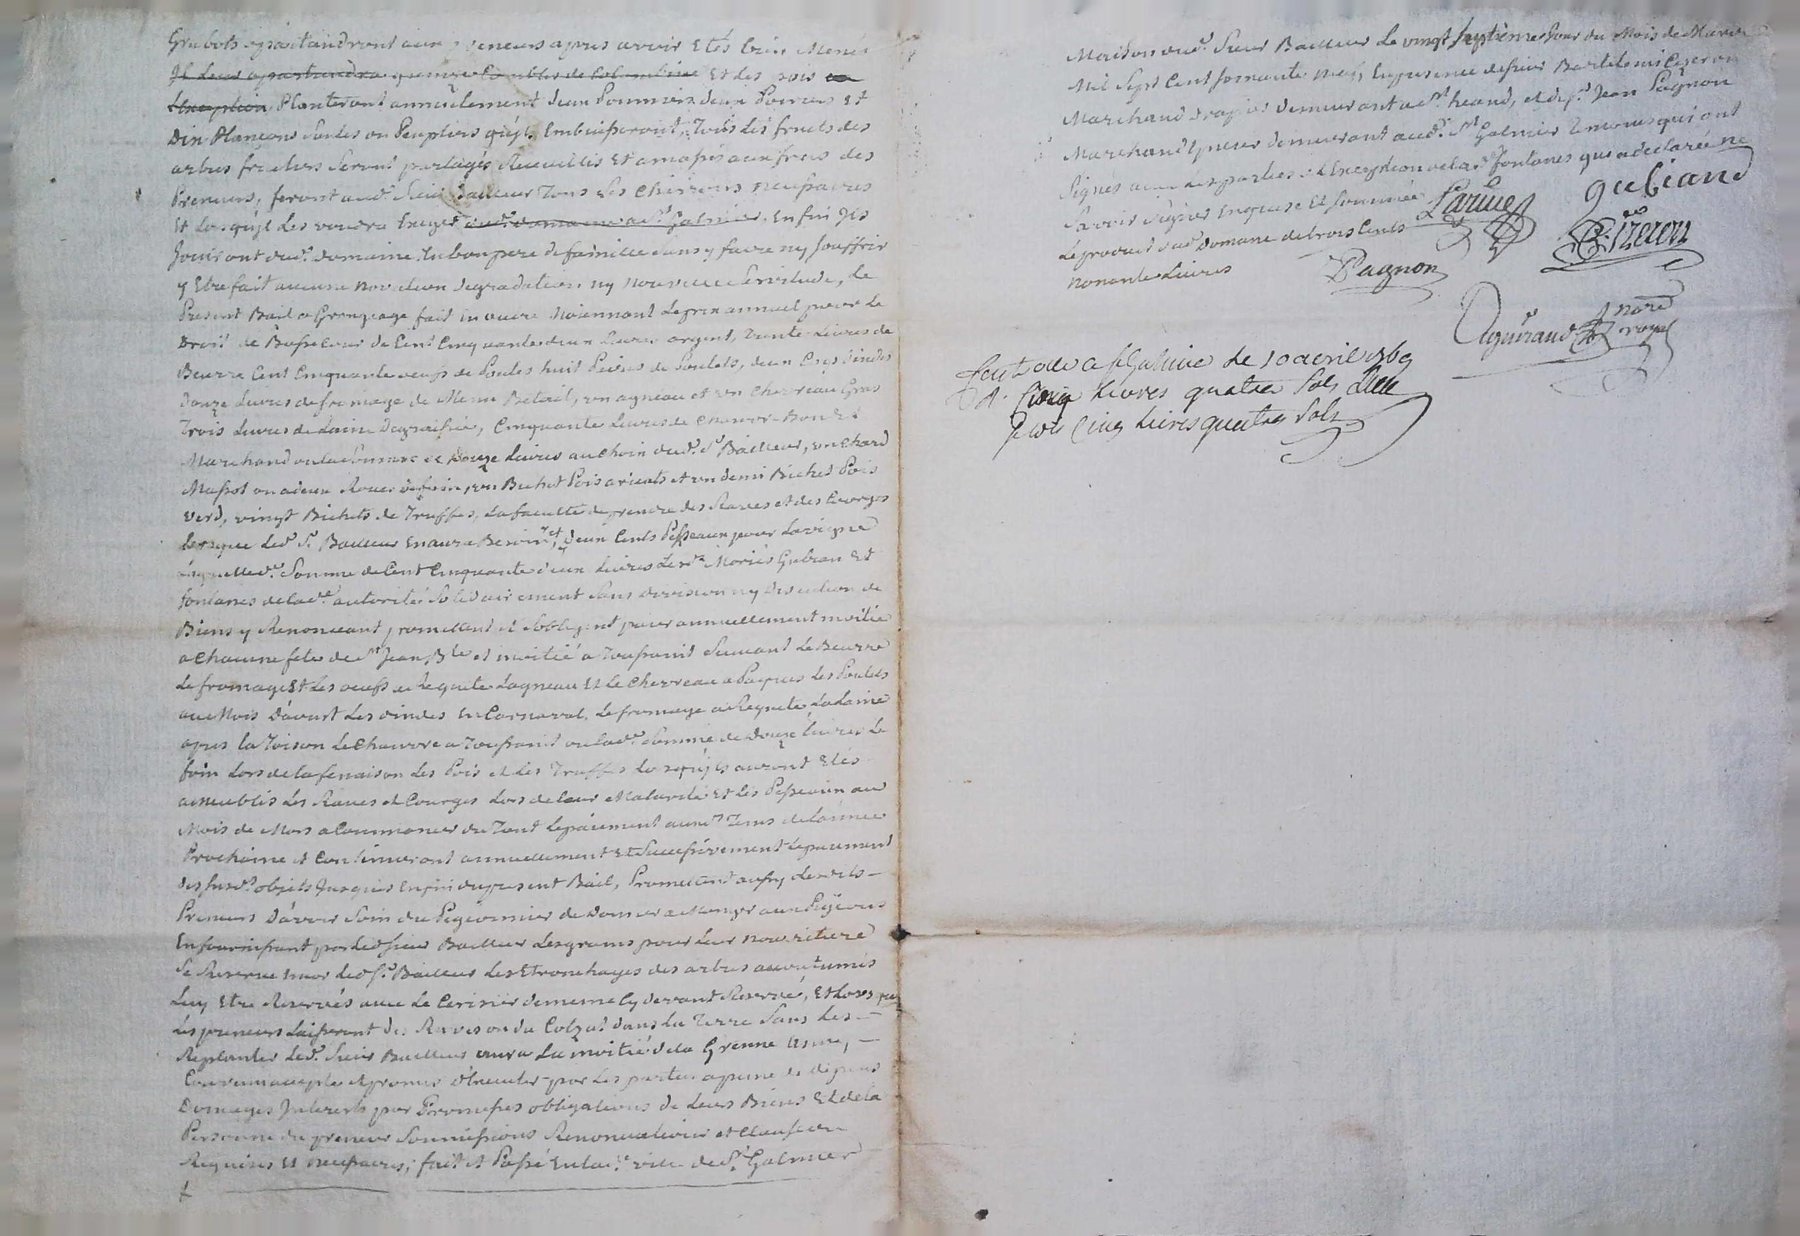 Grubots apartiandront aux preneurs apres avoir Etés bien Menés
Il Leur apartiendra quinze Combles de Colombine Et Les pois
Exception Planteront annuelement deux Pommiers deux Poiriers Et
Dix Plançons Saules ou Peupliers qu'ils Embuissoront, Tous Les fruits des
arbres fruitiers Seront partagés Recueillis Et amassés aux frais des
Preneurs, feront aud. Sieur Bailleur Tous Les Charrois necessaires
Et Lorsqu'il Les voudra Exiger aud. domaine a St Galmier. Enfin Ils
Jouiront dud. domaine En bon pere de famille sans y faire ny Souffrir
y Etre fait aucune novation degradation ny nouvelle Servitude, Le
Present Bail a Grangeage fait en outre Moiennant Le prix annuel pour Le
Droit de Basse Cour de Cent Cinquante deux Livres argent, trente Livres de
Beurre Cent Cinquante oeufs de Poules huit Paires de Poulets, deux Coqs dindes
douze Livres de fromage de Menu Betail, un agneau et un Chevreau Gras
Trois Livres de Laine Degraissée, Cinquante Livres de Chanvre Bon Et
Marchand ou la Somme de Douze Livres au Choix dud. Sr Bailleur, un Chard
Massot ou a deux Roues de foin, un Bichet Pois et un demi Bichet Pois
verd, vingt Bichets de Truffes, La faculté de prendre des Raves et des Courges
Lorsque Led. Sr Bailleur En aura Besoin, et deux Cents Pesseaux pour La vigne
Laquelle d. Somme de Cent Cinquante deux Livres Les d. Mariés Gubian Et
fontanes de Lad. autorité Solidairement Sans division ny discution de
Biens y Renonceant promettent et S'obligent paier annuellement moitié
a Chacune fete de St Jean Bte et moitié a Toussaint Suivant Le Beurre
Le fromage Et Les oeufs a Requete Lagneau Et Le Chevreau a Paques Les Poulets
au Mois D'aoust Les dindes En Carnaval, Le fromage a Requete La Laine
apres la Toison Le Chanvre a Toussaint ou Lad. Somme de Douze Livres Le
foin Lors de La fenaison Les Pois et Les Truffes Lorsqu'ils auront Etés
ameublis Les Raves et Courges Lors de Leur Maturité Et Les Pesseaux au
Mois de Mars a Commancer du Tout Le paiement aud. Tems de L'année
Prochaine et Continueront annuellement Et Successivement Le paiement
des susd. objets Jusques En fin du present Bail, Promettent aussy Lesdits
Preneurs D'avoir Soin du Pigeonnier de donner a Manger aux Pigeons
En fournissant par Led. Sieur Bailleur Les grains pour Leur nourriture
Se Reserve Led. Sr Bailleur Les Etronchages des arbres
Luy Etre Reservés avec Le Cerisier de meme Cy devant Reservé, Et Lorsque
Les preneurs Laisseront des Raves ou du Colzat dans La Terre Sans Les
Replanter Led. Sieur Bailleur aura La moitié de la Grenne
Convenu accepté et promis D'Executer par Les parties a peine de depens
Domages Interests par Promesses obligations de Leurs Biens Et de La
Personne du preneur Soumissions Renonciations et Clauses
Requises Et necessaires; fait et Passé En Lad. ville de St Galmier
Maison dud. Sieur Bailleur Le vingt Septieme Jour du Mois de Mars
Mil Sept Cent soixante neuf, En presence de sieur Bartelemi Ciseron
Marchand Drapier demeurant a St heand, et de Sr Jean Pagnon
Marchand demeurant aud. St Galmier Temoins qui ont
Signés avec Les parties a L'Exception de Lad. fontanes qui a declaré ne
Savoir Signer Enquise Et Sommée
Le produit dud. Domaine de trois Cents
nonante Livres
Larive Gubiand
B. Cizeron
Pagnon
Aguiraud Nore royal
Controllé a St Galmier Le 10 avril 1769
R. Cinq Livres quatre Sols
Cinq Livres quatre Sols